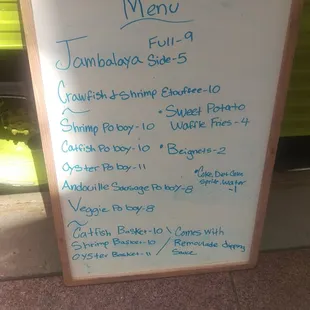 Menu
Jambalaya Full-9
Side-5
Crawfish & Shrimp Etouffee-10
~
• Sweet Potato
Waffle Fries-4
Shrimp Po boy-10
Catfish Po boy-10
• Beignets-2
Oyster Po boy-11
• Coke, Diet Coke
Sprite, Water
-1
Andouille Sausage Po boy-8
Veggie Po boy-8
~
Catfish Basket-10 \ Comes with
Shrimp Basket-10 Remoulade dipping
Oyster Basket-11 / Sauce